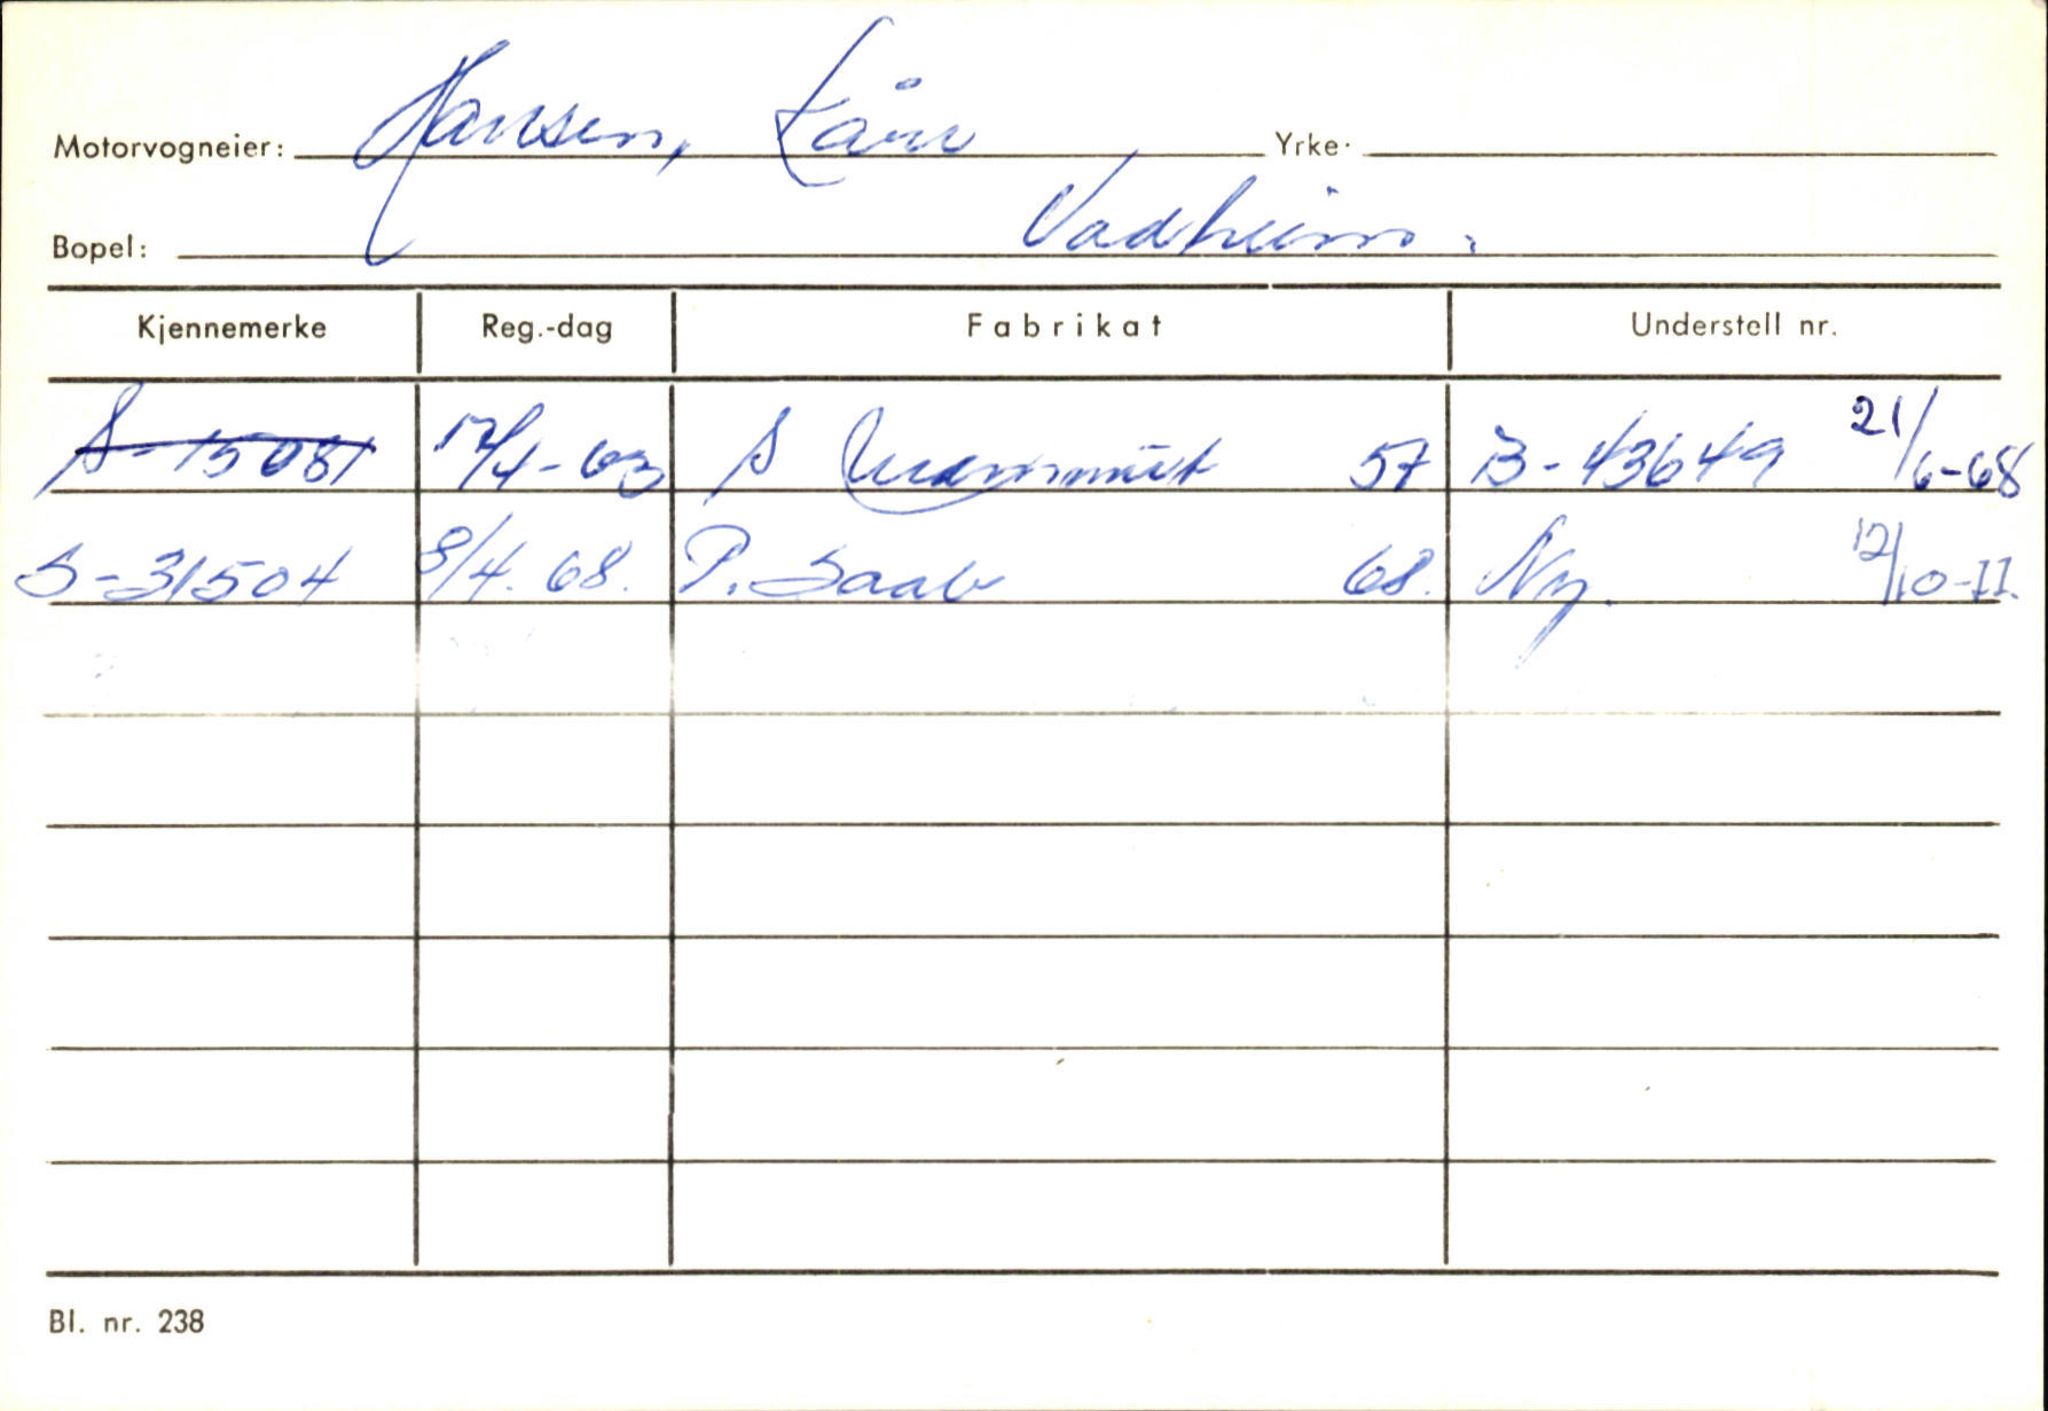 Motorvogneier: Hansen, Kåre Yrke·
Bopel: Vadheim.
Kjennemerke Reg.-dag Fabrikat Understell nr.
S-15081 17/4-63 S 57 B-43649 21/6-68
S-31504 8/4. 68. P. Saab 68. Ny. 12/10-II.
Bl. nr. 238